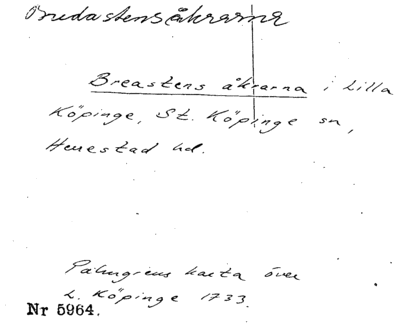 Bredastensåkrarna
Breastens åkrarna i Lilla
Köpinge, St. Köpinge sn,
Herrestad hd.
Palmgrens karta över
L. Köpinge 1733.
Nr 5964.